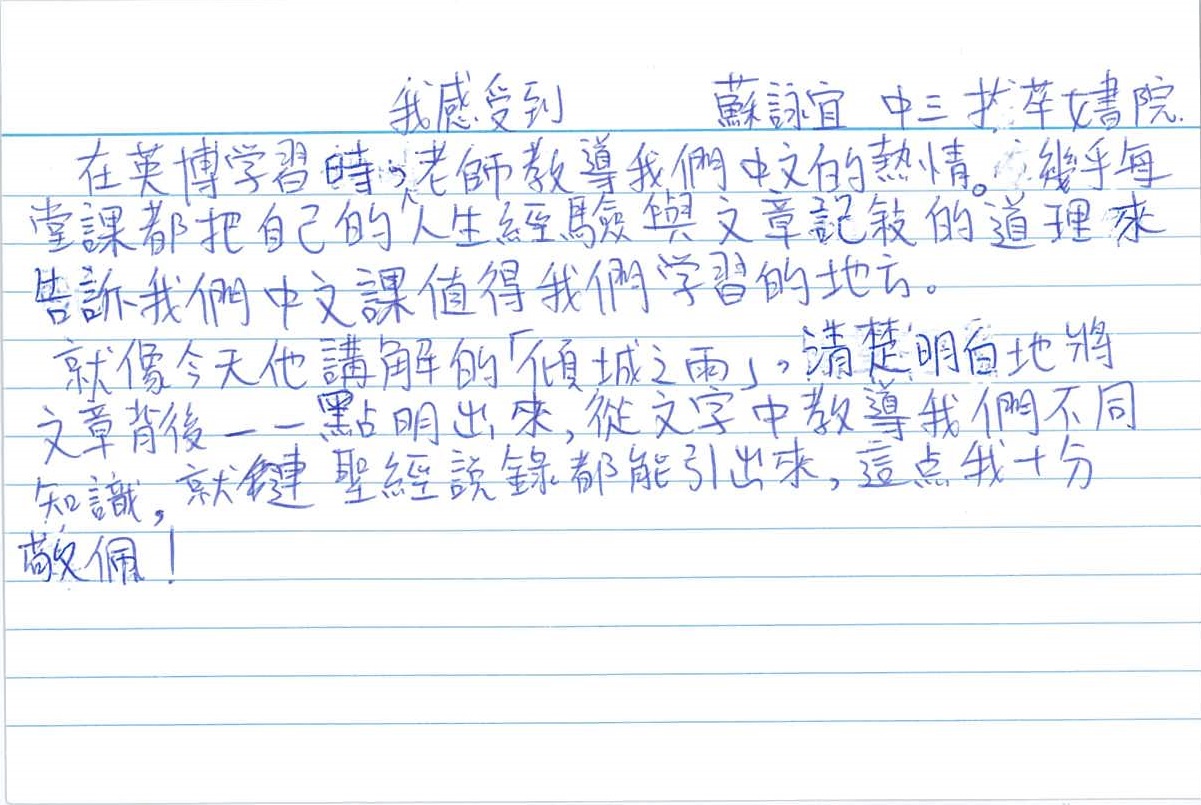 我感受到 蘇詠宜 中三 拔萃女書院
在英博学習時，老師教導我們中文的熱情。幾乎每
堂課都把自己的人生經驗與文章記敍的道理來
告訴我們中文課值得我們学習的地方。
就像今天他講解的「傾城之雨」，清楚明白地將
文章背後一一點明出來，從文字中教導我們不同
知識，就 聖經説錄都能引出來，這点我十分
敬佩！